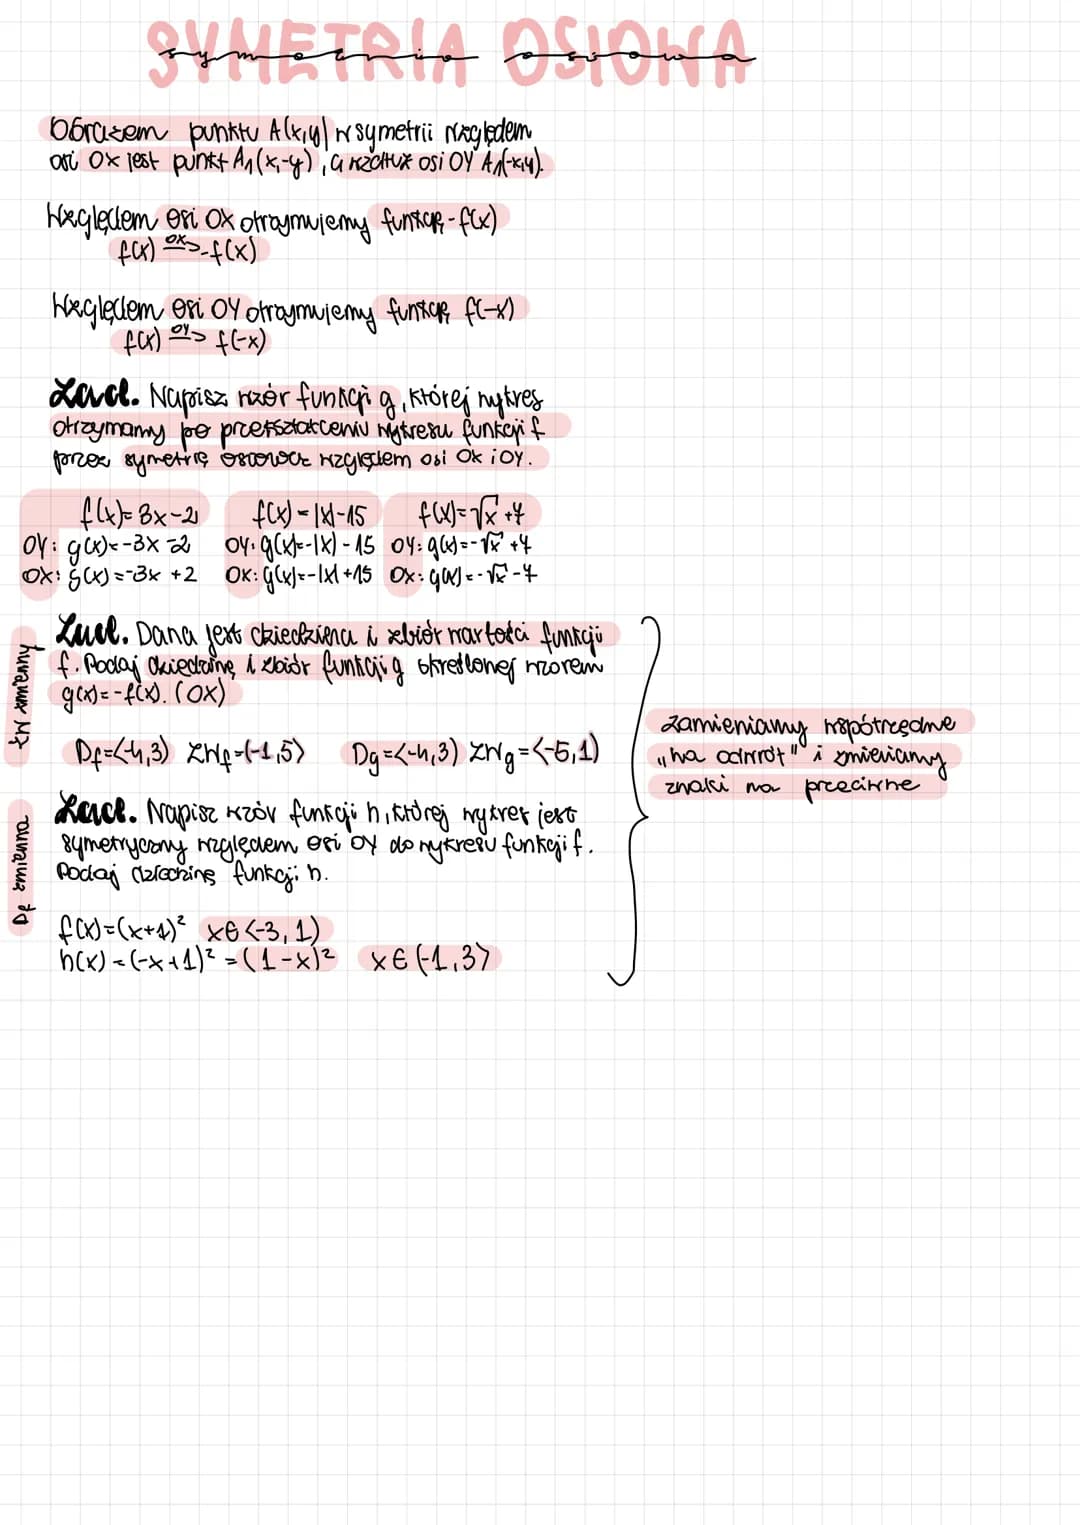 SYMETRIA OSIOWA
symetria osiowa
Obrazem punktu A(x,y) w symetrii względem
osi OX jest punkt A₁(x,-y), a wzdłuż osi OY A₁(-x,y).
Względem osi OX otrzymujemy funkcję -f(x)
f(x) OX> -f(x)
Względem osi OY otrzymujemy funkcję f(-x)
f(x) OY> f(-x)
Zad. Napisz wzór funkcji g, której wykres
otrzymamy po przekształceniu wykresu funkcji f
przez symetrię osiową względem osi OX i OY.
f(x)=3x-2 f(x)=|x|-15 f(x)=√x+4
OY: g(x)=-3x-2 OY: g(x)=-|x|-15 OY: g(x)=-√x+4
OX: g(x)=-3x+2 OX: g(x)=-|x|+15 OX: g(x)=-√x-4
ZW zmienny
Zad. Dana jest dziedzina i zbiór wartości funkcji
f. Podaj dziedzinę i zbiór funkcji g określonej wzorem
g(x)=-f(x). (OX)
Df=<-4,3) ZWf=(-1,5> Dg=<-4,3) ZWg=<-5,1)
zamieniamy współrzędne
„na odwrót" i zmieniamy
znaki na przeciwne
Df zmienna
Zad. Napisz wzór funkcji h, której wykres jest
symetryczny względem osi OY do wykresu funkcji f.
Podaj dziedzinę funkcji h.
f(x)=(x+1)² x∈<-3,1)
h(x)=(-x+1)²=(1-x)² x∈(-1,3>